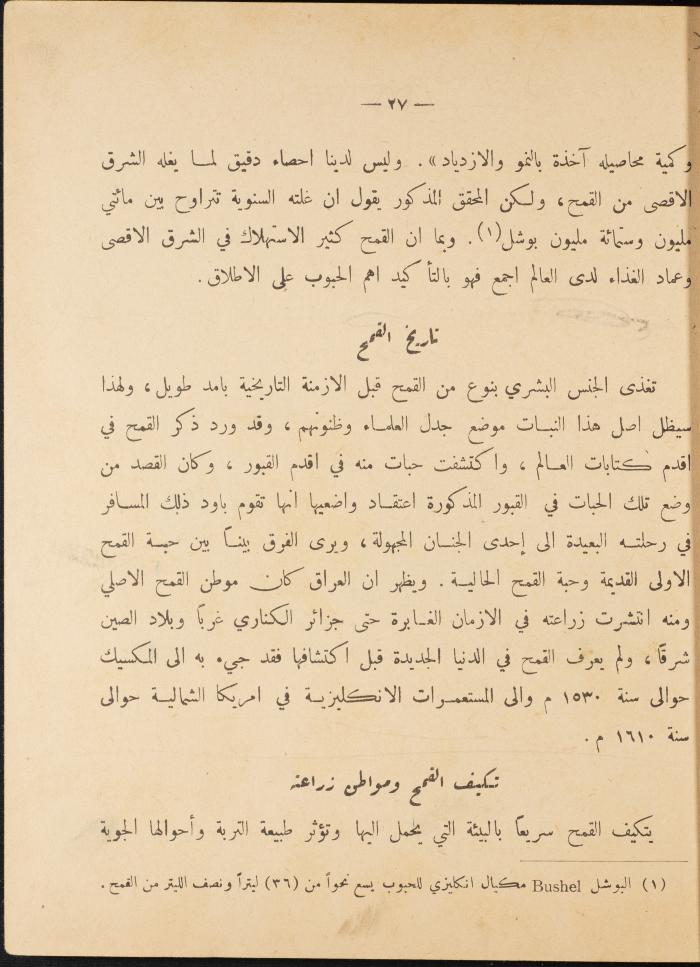 — ٢٧ —
وكمية محاصيله آخذة بالنمو والازدياد». وليس لدينا احصاء دقيق لما يغله الشرق
الاقصى من القمح، ولكن المحقق المذكور يقول ان غلته السنوية تتراوح بين مائتي
مليون وستمائة مليون بوشل(١). وبما ان القمح كثير الاستهلاك في الشرق الاقصى
وعماد الغذاء لدى العالم اجمع فهو بالتأكيد اهم الحبوب على الاطلاق.
تاريخ القمح
تغذى الجنس البشري بنوع من القمح قبل الازمنة التاريخية بامد طويل، ولهذا
سيظل اصل هذا النبات موضع جدل العلماء وظنونهم، وقد ورد ذكر القمح في
اقدم كتابات العالم، واكتشفت حبات منه في اقدم القبور، وكان القصد من
وضع تلك الحبات في القبور المذكورة اعتقاد واضعيها انها تقوم باود ذلك المسافر
في رحلته البعيدة الى إحدى الجنان المجهولة، ويرى الفرق بيناً بين حبة القمح
الاولى القديمة وحبة القمح الحالية. ويظهر ان العراق كان موطن القمح الاصلي
ومنه انتشرت زراعته في الازمان الغابرة حتى جزائر الكناري غرباً وبلاد الصين
شرقاً، ولم يعرف القمح في الدنيا الجديدة قبل اكتشافها فقد جيء به الى المكسيك
حوالى سنة ١٥٣٠ م والى المستعمرات الانكليزية في امريكا الشمالية حوالى
سنة ١٦١٠ م.
تكيف القمح ومواطن زراعته
يتكيف القمح سريعاً بالبيئة التي يحمل اليها وتؤثر طبيعة التربة وأحوالها الجوية
(١) البوشل Bushel مكيال انكليزي للحبوب يسع نحواً من (٣٦) ليتراً ونصف الليتر من القمح.